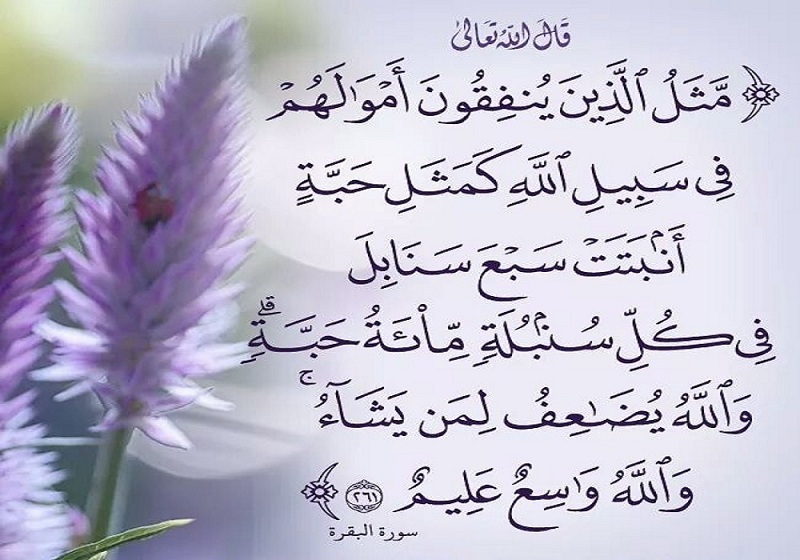 قَالَ اللَّهُ تَعَالَىٰ
﴿ مَّثَلُ ٱلَّذِينَ يُنفِقُونَ أَمْوَٰلَهُمْ
فِى سَبِيلِ ٱللَّهِ كَمَثَلِ حَبَّةٍ
أَنۢبَتَتْ سَبْعَ سَنَابِلَ
فِى كُلِّ سُنۢبُلَةٍ مِّا۟ئَةُ حَبَّةٍۗ
وَٱللَّهُ يُضَٰعِفُ لِمَن يَشَآءُۚ
وَٱللَّهُ وَٰسِعٌ عَلِيمٌ ٢٦١ ﴾
سورة البقرة